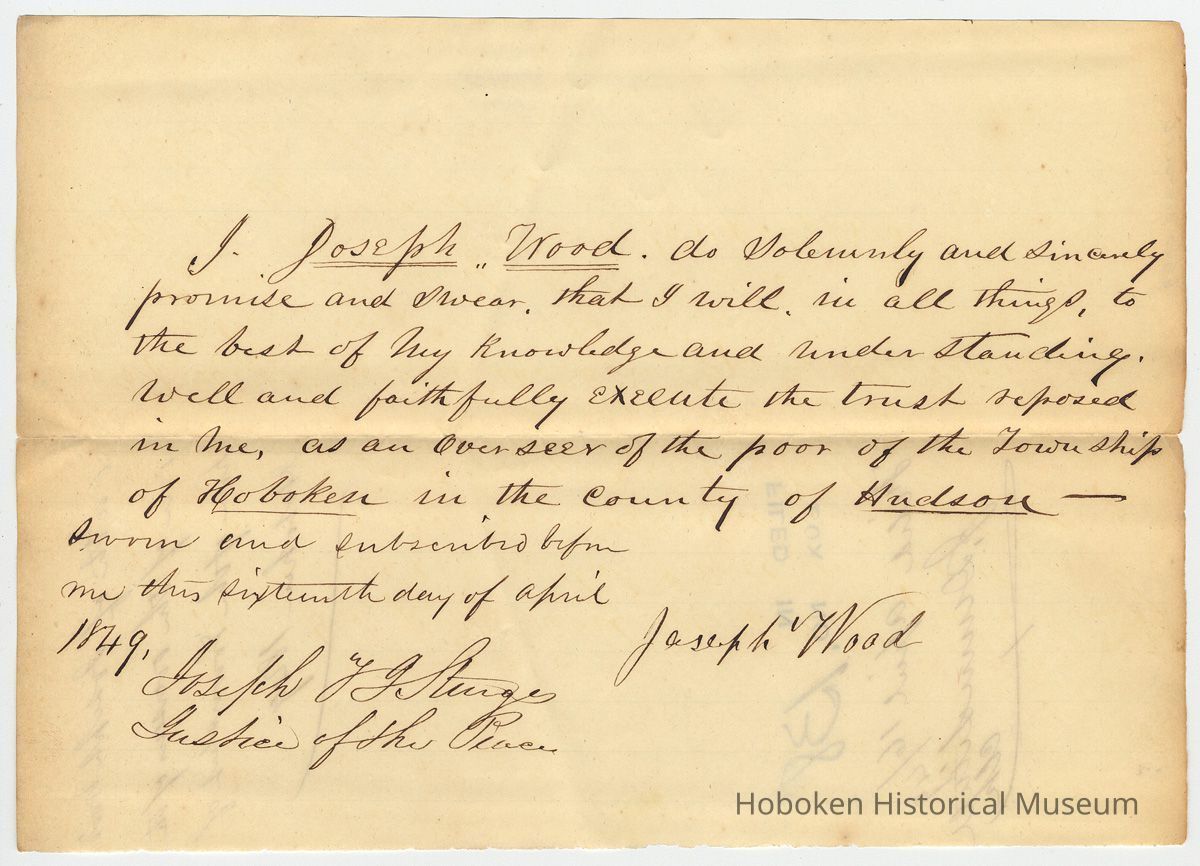 I. Joseph „ Wood. do Solemnly and sincerely
promise and swear, that I will. in all things, to
the best of My Knowledge and under standing.
Well and faithfully execute the trust reposed
in Me, as an Overseer of the poor of the Township
of Hoboken in the county of Hudson —
sworn and subscribed before
me this sixteenth day of April
1849,
Joseph Wood
Joseph Sturges
Justice of the Peace
FILED IN
Hoboken Historical Museum